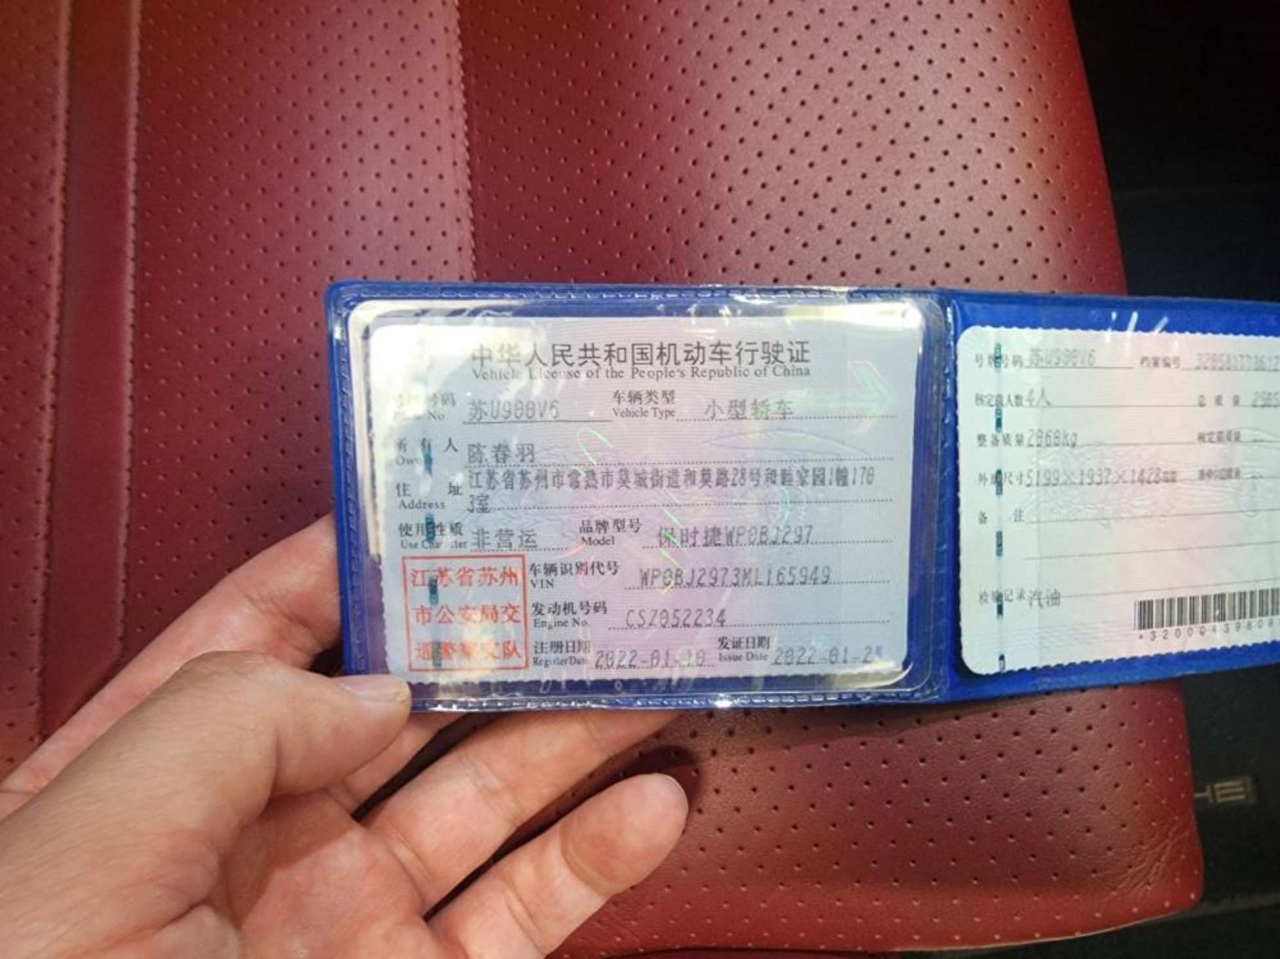 中华人民共和国机动车行驶证
Vehicle License of the People's Republic of China
号牌号码 苏U900V6 车辆类型 小型轿车
Plate No. Vehicle Type
所有人 陈春羽
Owner
住址 江苏省苏州市常熟市莫城街道和莫路28号和 家园1幢170
Address 3室
使用性质 非营运 品牌型号 保时捷WP0BJ297
Use Character Model
车辆识别代号 WP0BJ2973ML165949
VIN
发动机号码 CSZ052234
Engine No.
注册日期 2022-01-10 发证日期
Register Date Issue Date 2022-01-2
江苏省苏州
市公安局交
通警察支队
号牌号码 苏U900V6 档案编号
核定载人数 4人 总质量
整备质量 2060kg 核定载质量
外廓尺寸 5199×1937×1428mm
备注
检验记录 汽油